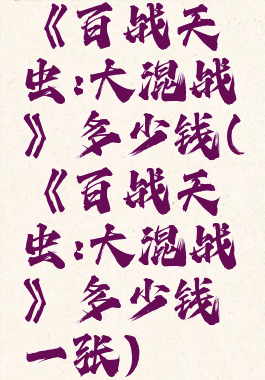 《百战天
虫:大混战
》多少钱(
《百战天
虫:大混战
》多少钱
一张)